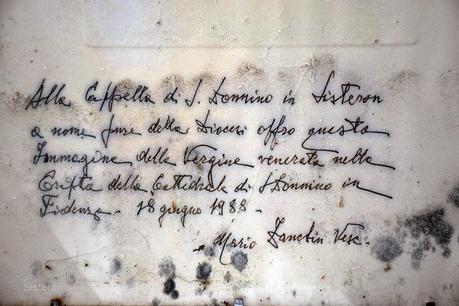 Alla Cappella di S. Donnino in Sisteron
a nome pure della Diocesi offro questa
Immagine della Vergine venerata nella
Cripta della Cattedrale di S. Donnino in
Fidenza - 18 giugno 1988 -
- Mario Zanchin Vesc.
Sisteron